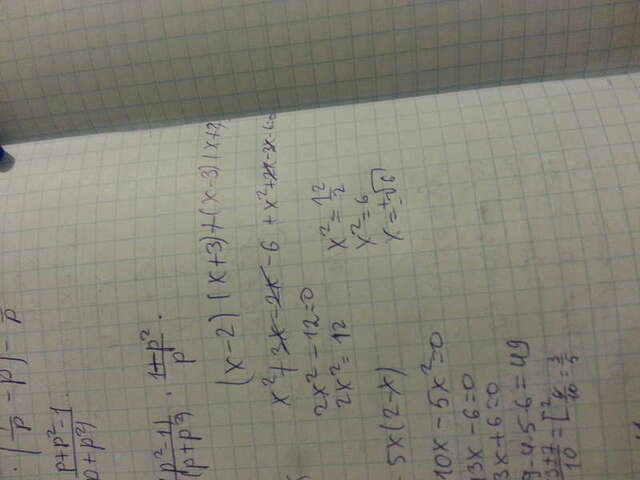 p+p²-1
p+p²)
p²-1)
(p+p²)
· 1+p²/p ·
(x-2)(x+3)+(x-3)(x+3
x²+3x-2x-6 +x²+2x-3x-6=0
2x²-12=0
2x²=12
x²=12/2
x²=6
x=±√6
5x(2-x)
10x-5x²=0
13x-6=0
3x+6=0
9-4·5·6=49
3+7/10=[2
6/10=3/5